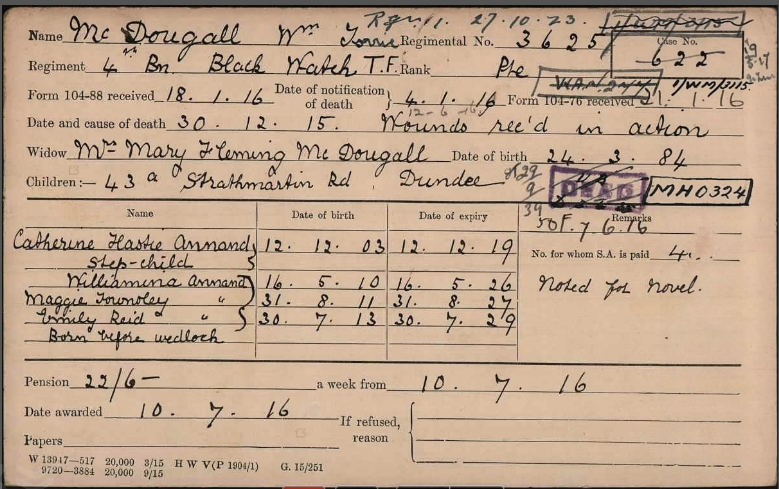 27.10.23.
Name Mc Dougall Wm Regimental No. 3625 Case No. 622
Regiment 4th Bn. Black Watch T.F. Rank Pte
Form 104-88 received 18.1.16 Date of notification of death } 4.1.16 Form 104-76 received 21.1.16
12-6-16
Date and cause of death 30.12.15. Wounds rec'd in action
Widow Mrs Mary Fleming Mc Dougall Date of birth 24.3.84
Children:— 43a Strathmartin Rd Dundee DEAD MH0324
F. 7.6.16
Name Date of birth Date of expiry Remarks
Catherine Hastie Annand } 12.12.03 12.12.19 No. for whom S.A. is paid 4.
step-child
Williamina Annand } 16.5.10 16.5.26 Noted for Novel.
Maggie Townsley " 31.8.11 31.8.27
Emily Reid " " 30.7.13 30.7.29
Born before wedlock
Pension 22/6— a week from 10.7.16
Date awarded 10.7.16 If refused, reason {
Papers
W 13947—517 20,000 3/15 H W V(P 1904/1) G. 15/251
9720—3884 20,000 9/15